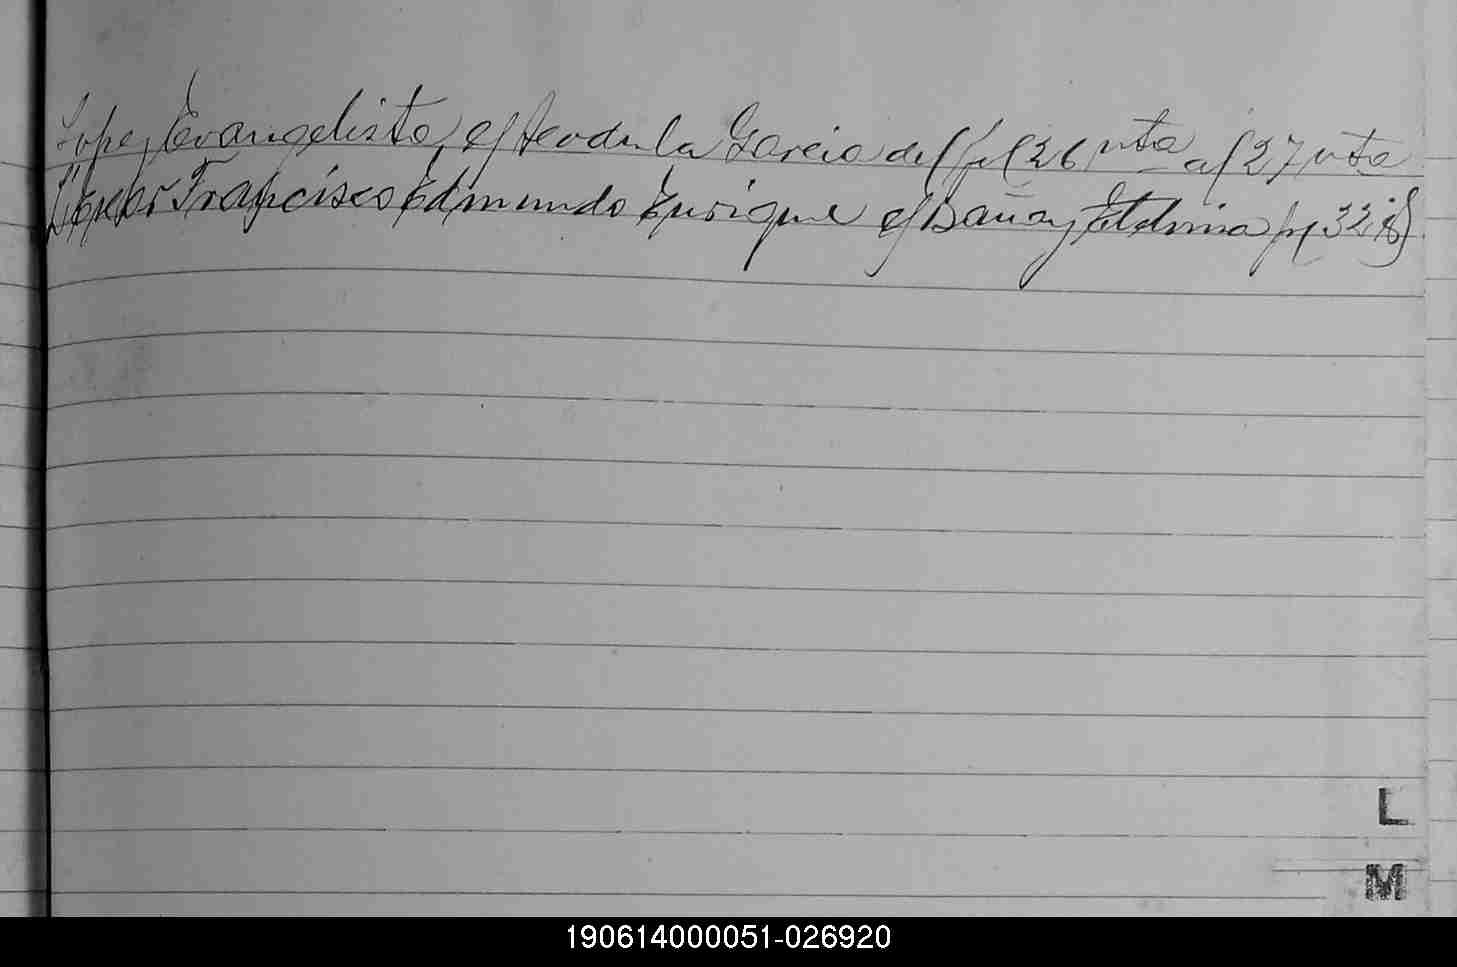 Lopez Evangelista, c/ Teodula Garcia de f/ 26 vta a f/ 27 vta
Francisco Edmundo Enrique c/ Etelvina
L
M
190614000051-026920